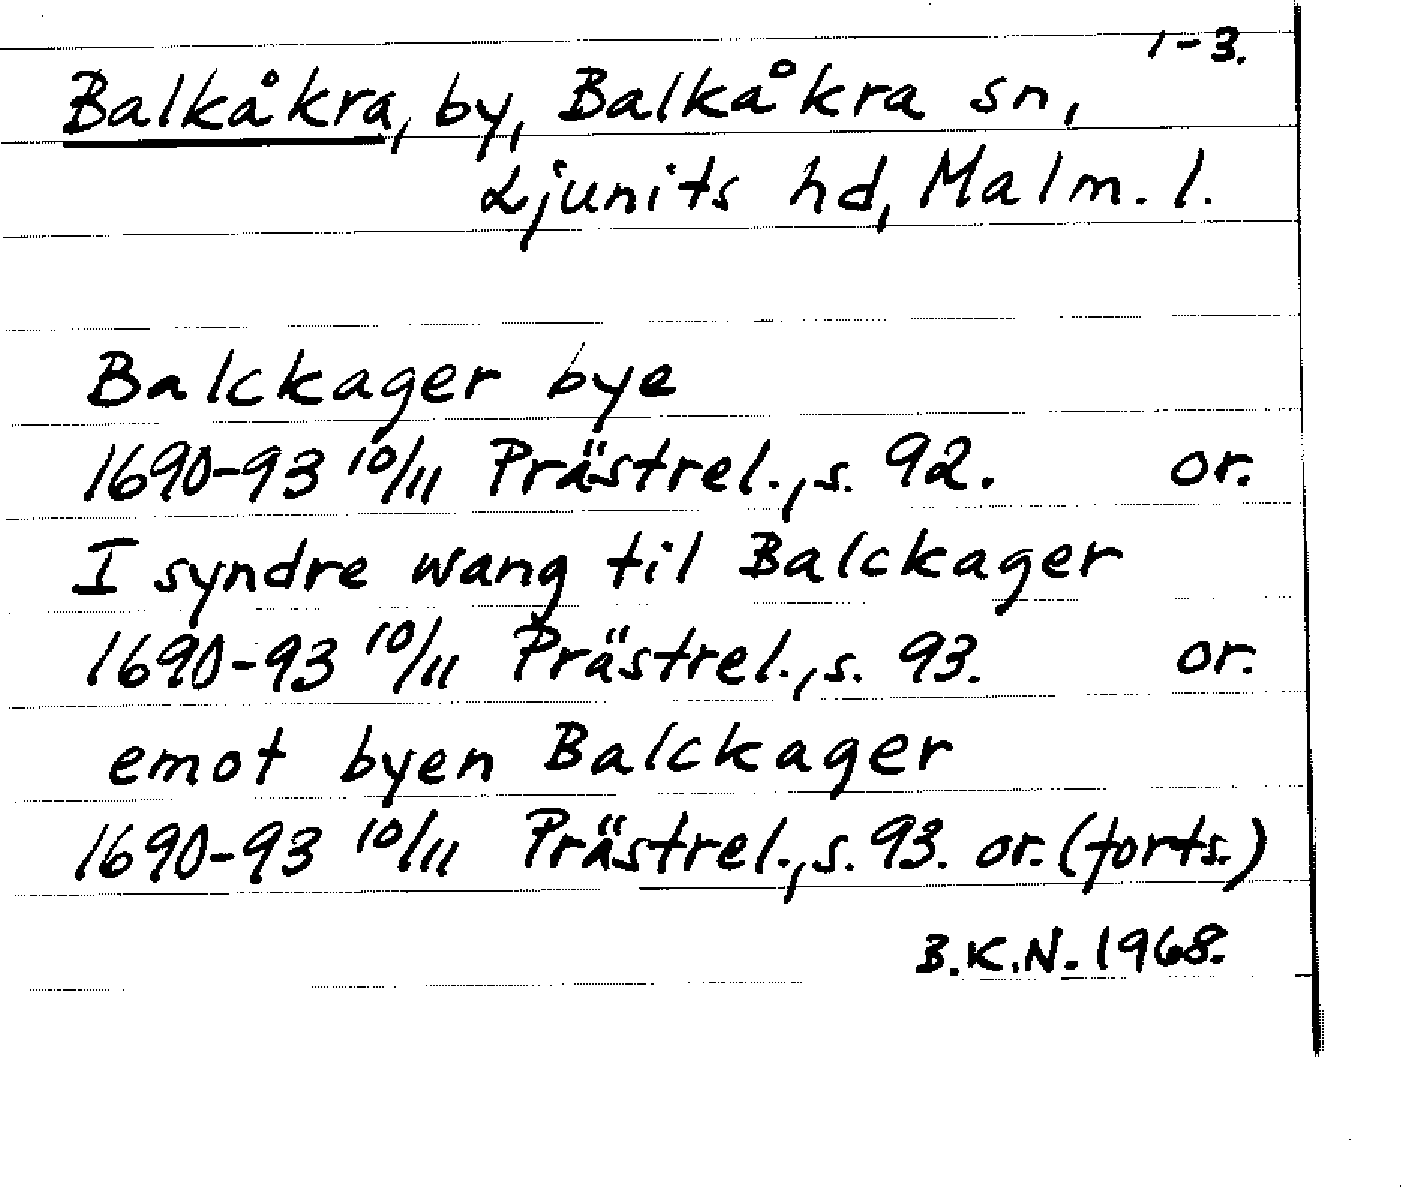 1-3.
Balkåkra, by, Balkåkra sn,
Ljunits hd, Malm. l.
Balckager bye
1690-93 10/11 Prästrel., s. 92. or.
I syndre wang til Balckager
1690-93 10/11 Prästrel., s. 93. or.
emot byen Balckager
1690-93 10/11 Prästrel., s. 93. or. (forts.)
B.K.N. 1968.